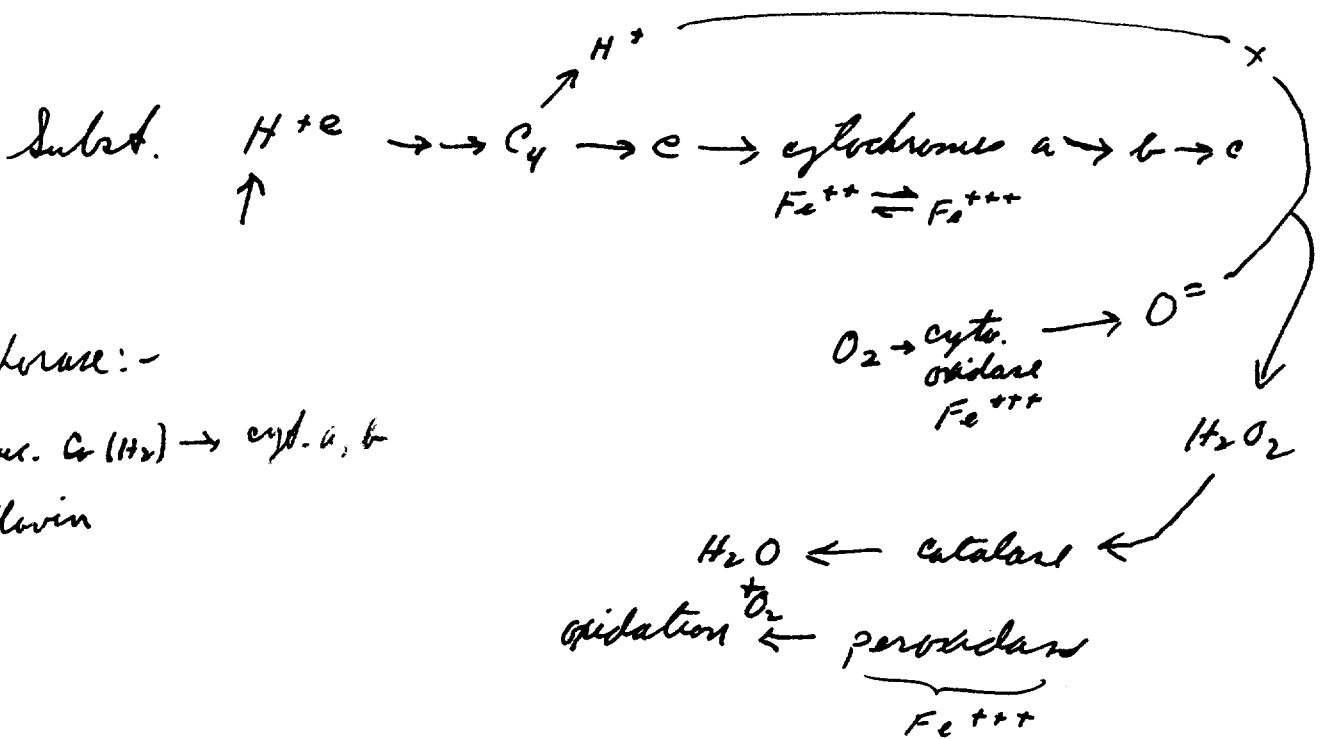 H⁺ x
Subst. H⁺ᵉ →→ C₄ → e → cytochromes a → b → c
↑ Fe⁺⁺ ⇌ Fe⁺⁺⁺
O₂ → cyto. → O⁼
oxidase
Fe⁺⁺⁺
horase:-
(H₂) → cyt. a, b
H₂O₂
lavin
H₂O ← catalase ←
+O₂
oxidation ← peroxidase
Fe⁺⁺⁺